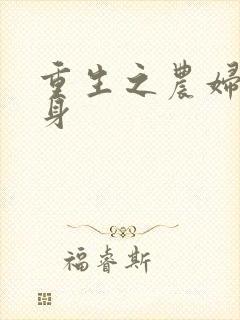 重生之農婦
身
福睿斯